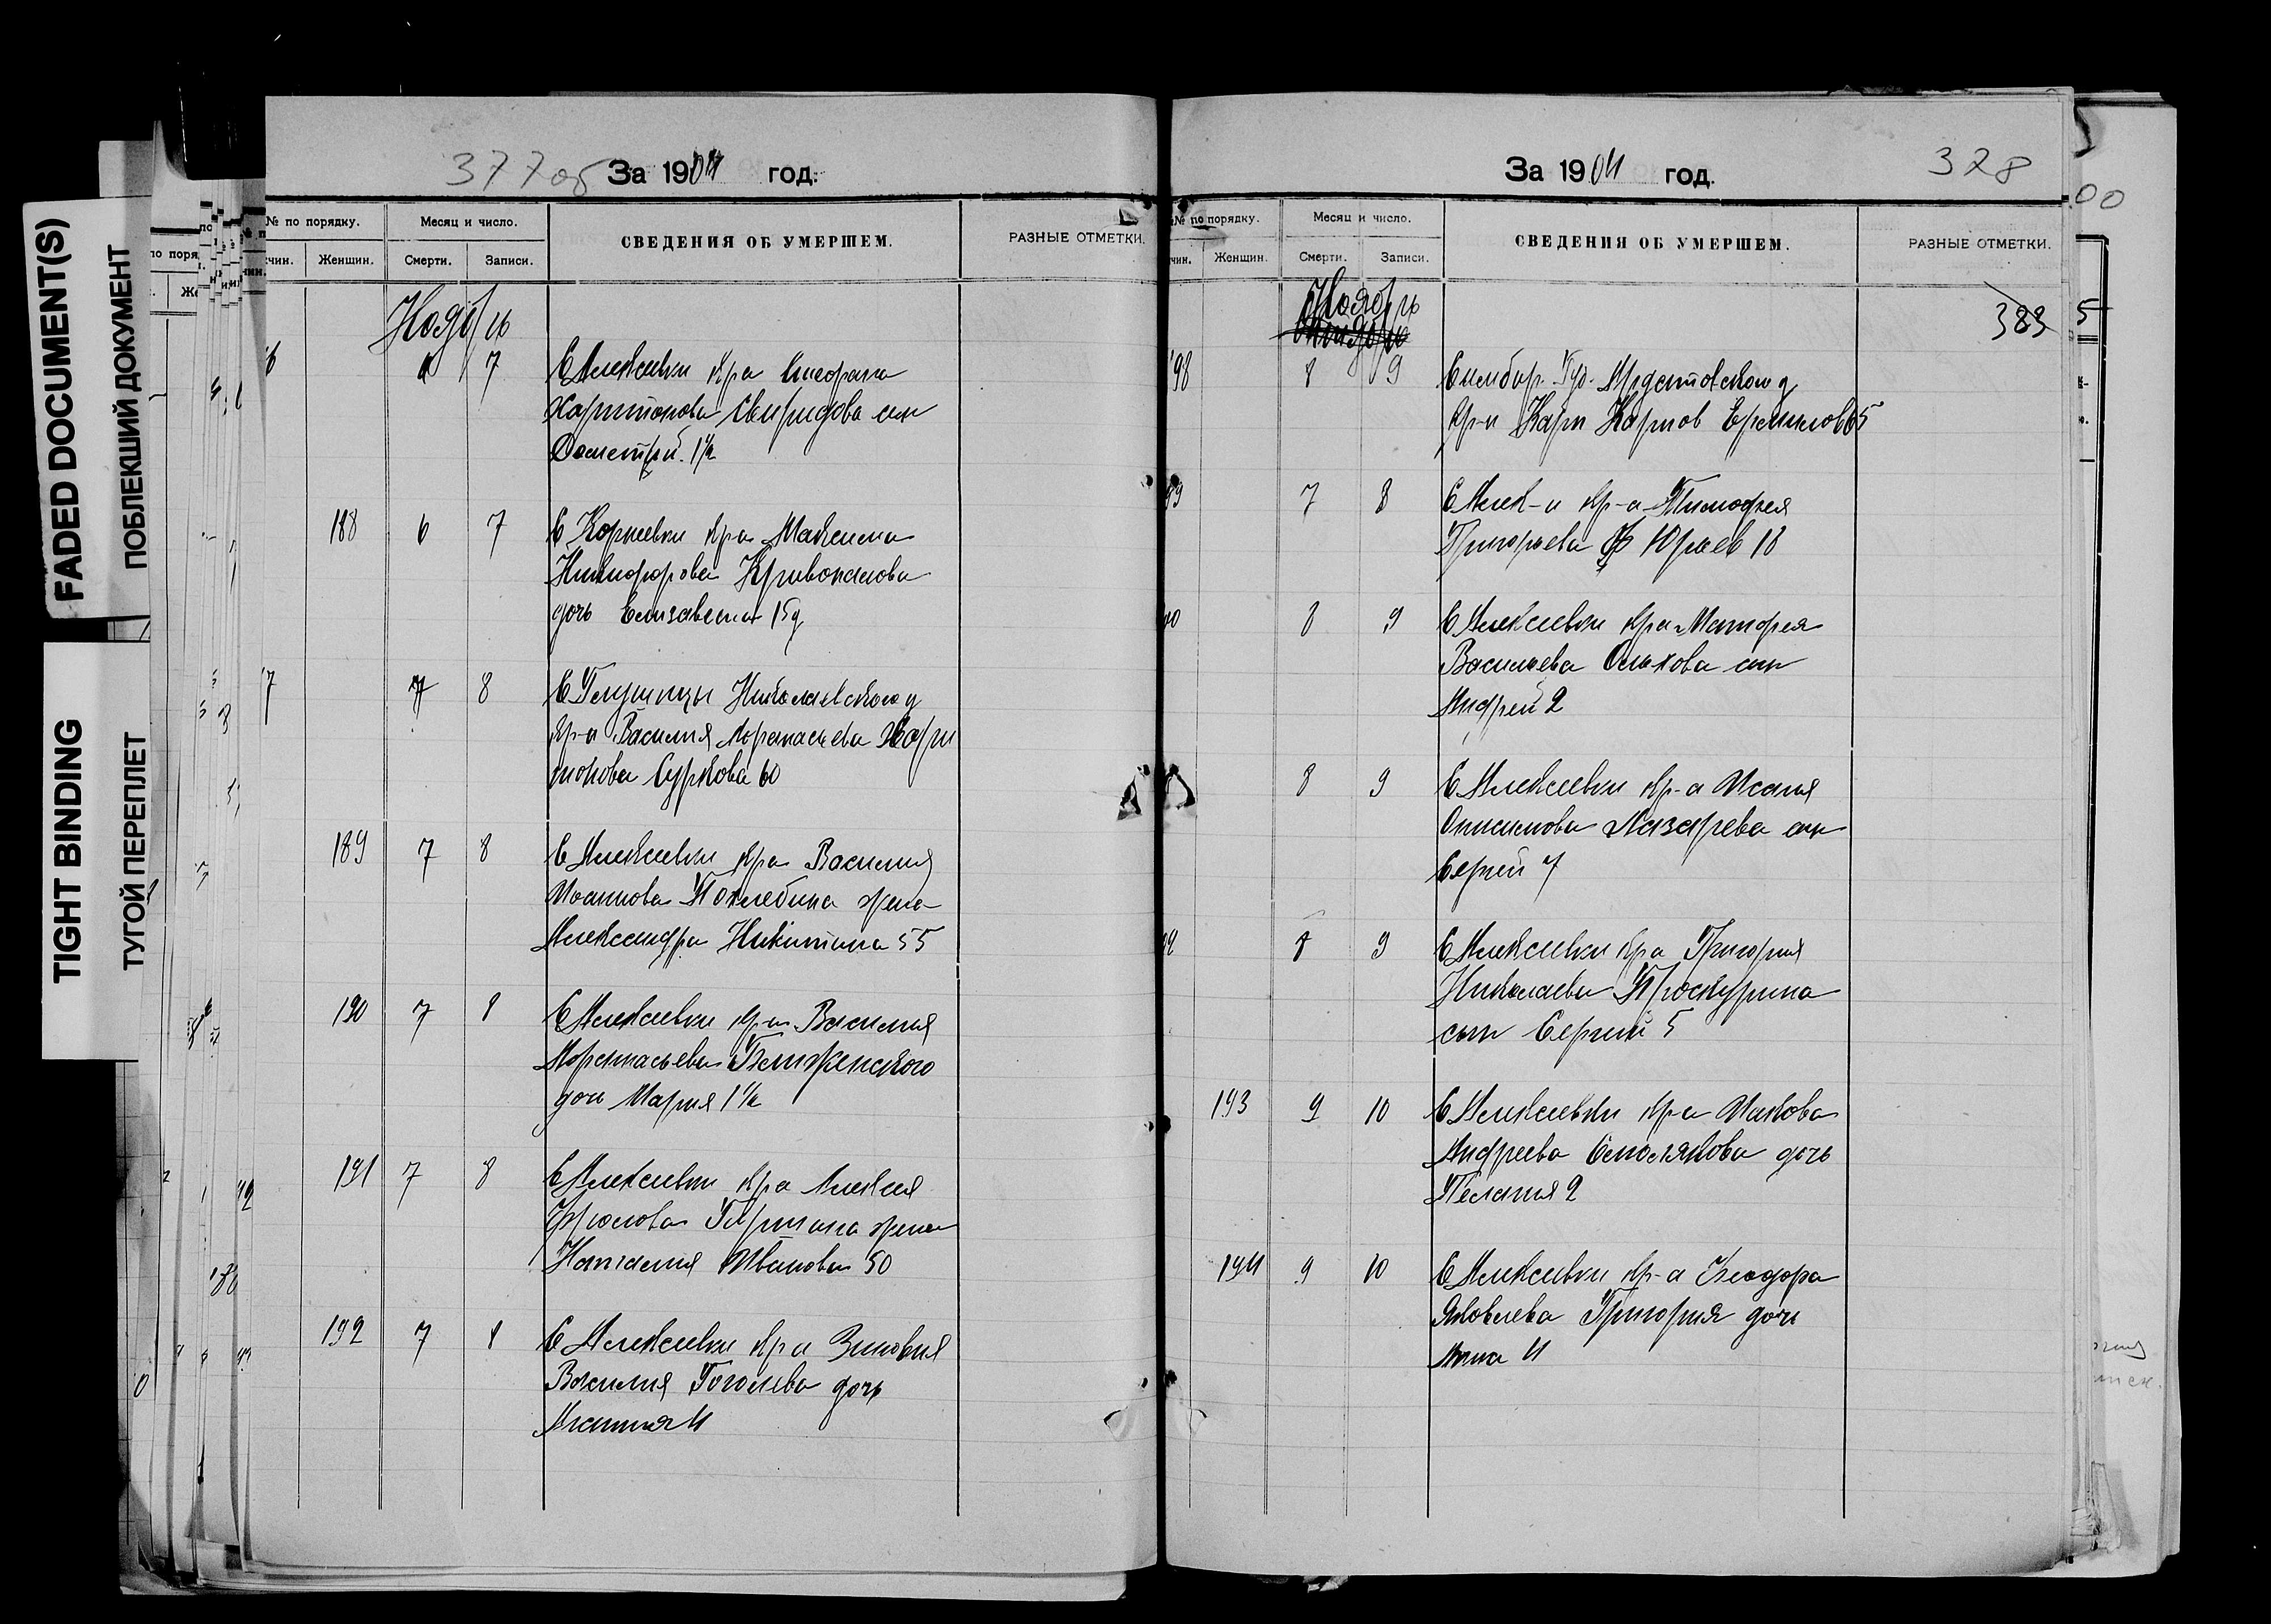 FADED DOCUMENT(S)
ПОБЛЕКШИЙ ДОКУМЕНТ
TIGHT BINDING
ТУГОЙ ПЕРЕПЛЕТ
377об За 1904 год.
№ по порядку. Месяц и число. СВЕДЕНИЯ ОБ УМЕРШЕМ. РАЗНЫЕ ОТМЕТКИ.
Женщин. Смерти. Записи.
Ноябрь
6 7 С Алексеевки кр-а
Харитонова Свиридова сын
Дометрий 1½
188 6 7 С Корнеевки кр-а Максима
Никифорова Кривопалова
дочь Елизавета 15д
7 7 8 С Глушицы Николаевского у
кр-н Василия Афанасьева Хари
тонова Суркова 60
189 7 8 С Алексеевки кр-а Василия
Иоаннова Похлебина жена
Александра Никитина 55
190 7 8 С Алексеевки кр-а Василия
Афанасьева
дочь Мария 1½
191 7 8 С Алексеевки кр-а Алексея
Фролова жена
Наталия Иванова 50
192 7 8 С Алексеевки кр-а Зиновия
Василия Гоголева дочь
Агапия 4
За 1904 год. 328
№ по порядку. Месяц и число. СВЕДЕНИЯ ОБ УМЕРШЕМ. РАЗНЫЕ ОТМЕТКИ.
Женщин. Смерти. Записи.
Ноябрь 383
198 8 9 Симбир. Губ. Ардатовского у
кр-н Карп Карпов Ермилов 65
99 7 8 С Алек-и кр-а Тимофея
Григорьева Юрьев 18
8 9 С Алексеевки кр-а Матфея
Васильева Ольхова сын
Андрей 2
8 9 С Алексеевки кр-а Исаия
Онисимова Лазарева сын
Сергий 7
8 9 С Алексеевки кр-а Григория
Николаева Проскурина
сын Сергий 5
193 9 10 С Алексеевки кр-а Иакова
Андреева дочь
Пелагия 2
194 9 10 С Алексеевки кр-а Феодора
Яковлева Григория дочь
Анна 4